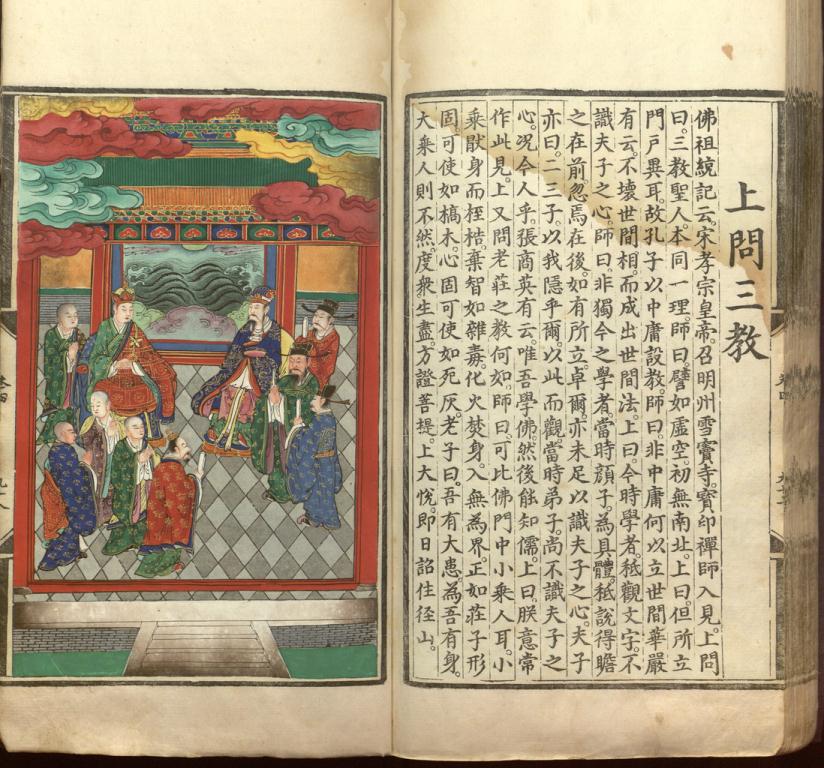 上問三教
佛祖統記云。宋孝宗皇帝。召明州雪竇寺。寶印禪師入見。上問
曰。三教聖人。本同一理。師曰。譬如虛空。初無南北。上曰。但所立
門戶異耳。故孔子以中庸設教。師曰。非中庸何以立世間。華嚴
有云。不壞世間相。而成出世間法。上曰。今時學者。秪觀文字。不
識夫子之心。師曰。非獨今之學者。當時顏子。為具體。秪說得瞻
之在前。忽焉在後。如有所立卓爾。亦未足以識夫子之心。夫子
亦曰。二三子。以我隱乎爾。以此而觀。當時弟子。尚不識夫子之
心。況今人乎。張商英有云。唯吾學佛。然後能知儒。上曰。朕意常
作此見。上又問老莊之教何如。師曰。可比佛門中小乘人耳。小
乘猒身而桎梏。棄智如雜毒。化火焚身。入無為界。正如莊子形
固。可使如槁木。心固可使如死灰。老子曰。吾有大患。為吾有身。
大乘人則不然。度衆生盡。方證菩提。上大悅。即日詔住徑山。